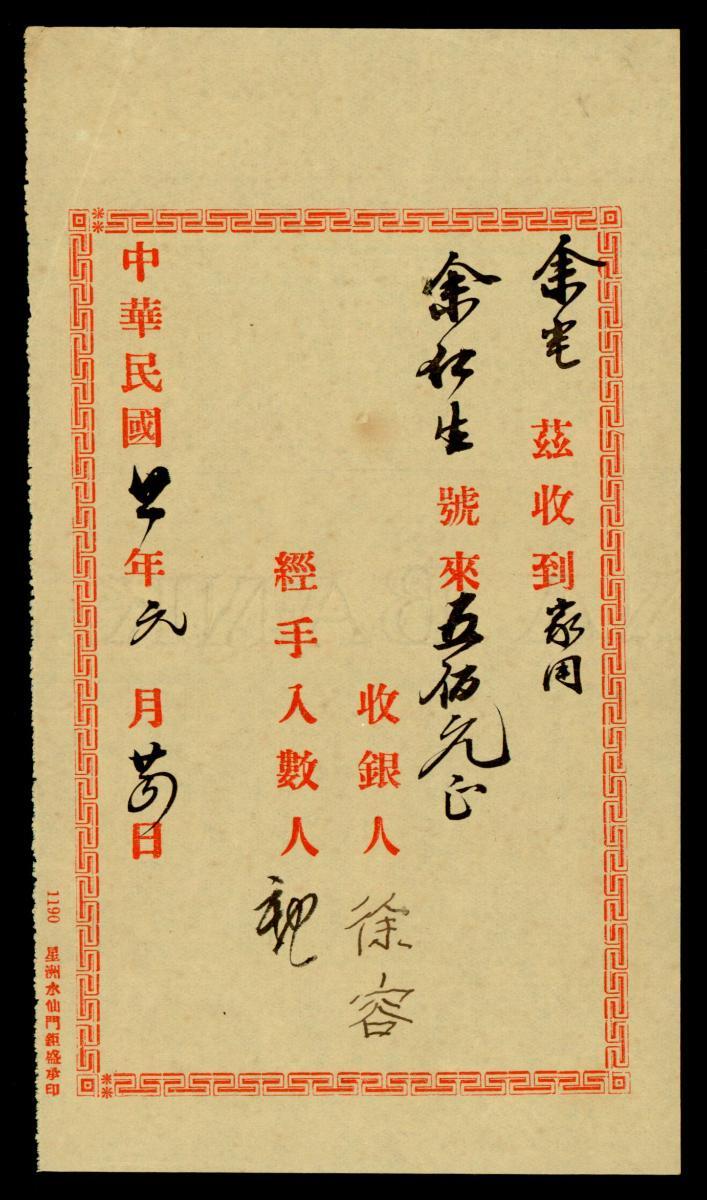 余宅 茲收到家用
余仁生號來五佰元正
收銀人 徐容
經手入數人
中華民國 年元月廿四日
1190 星洲水仙門鉅盛承印